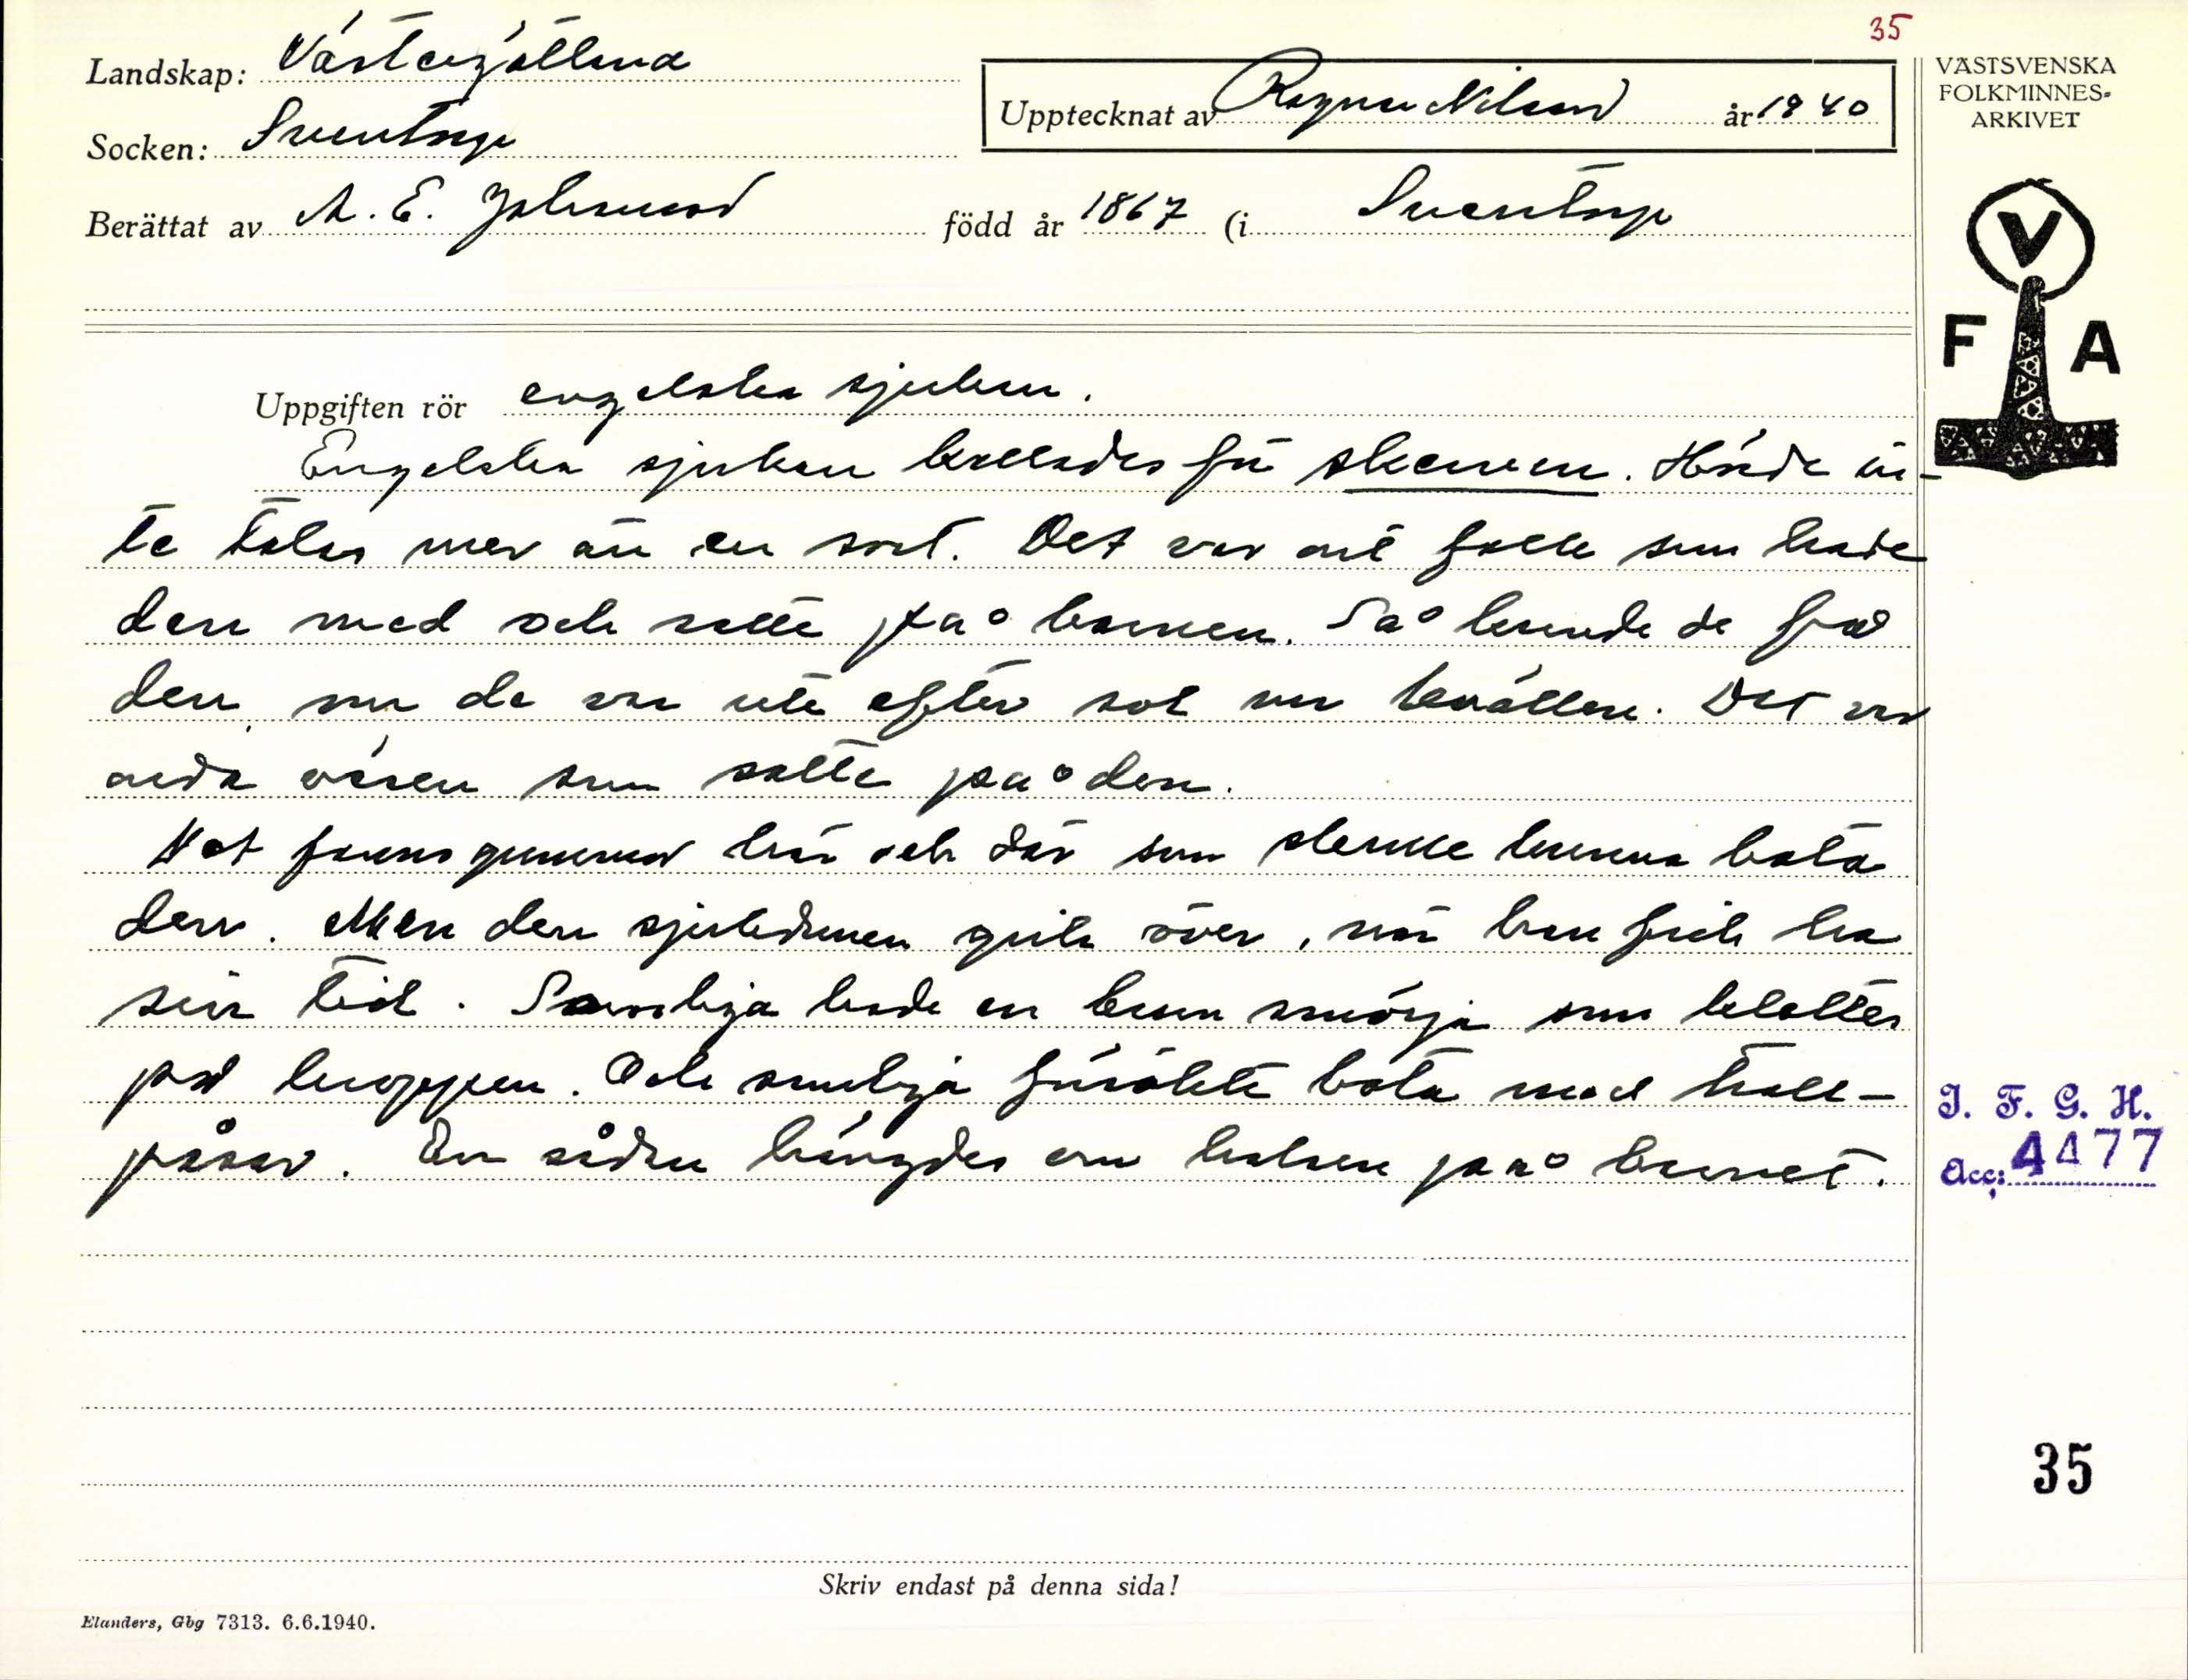 35
Landskap: Västergötland
Socken: Sventorp
Berättat av A. E. Johansson
Upptecknat av Ragnar Nilsson år 1940
född år 1867 (i Sventorp
VÄSTSVENSKA
FOLKMINNES-
ARKIVET
V
F A
Uppgiften rör engelska sjukan.
Engelska sjukan kallades för skerven. Hörde in-
te talas mer än en sort. Det var ont folk som hade
den med och satte på barnen. Så kunde de få
den, om de var ute efter sol om kvällen. Det var
onda väsen som satte på den.
Det fanns gummor här och där som skulle kunna bota
den. Men den sjukdomen gick över, när han fick ha
sin tid. Somliga hade en brun smörja som kletades
på kroppen. Och somliga försökte bota med troll-
påsar. En sådan hängdes om halsen på barnet.
I. F. G. H.
Acc: 4477
35
Skriv endast på denna sida!
Elanders, Gbg 7313. 6.6.1940.